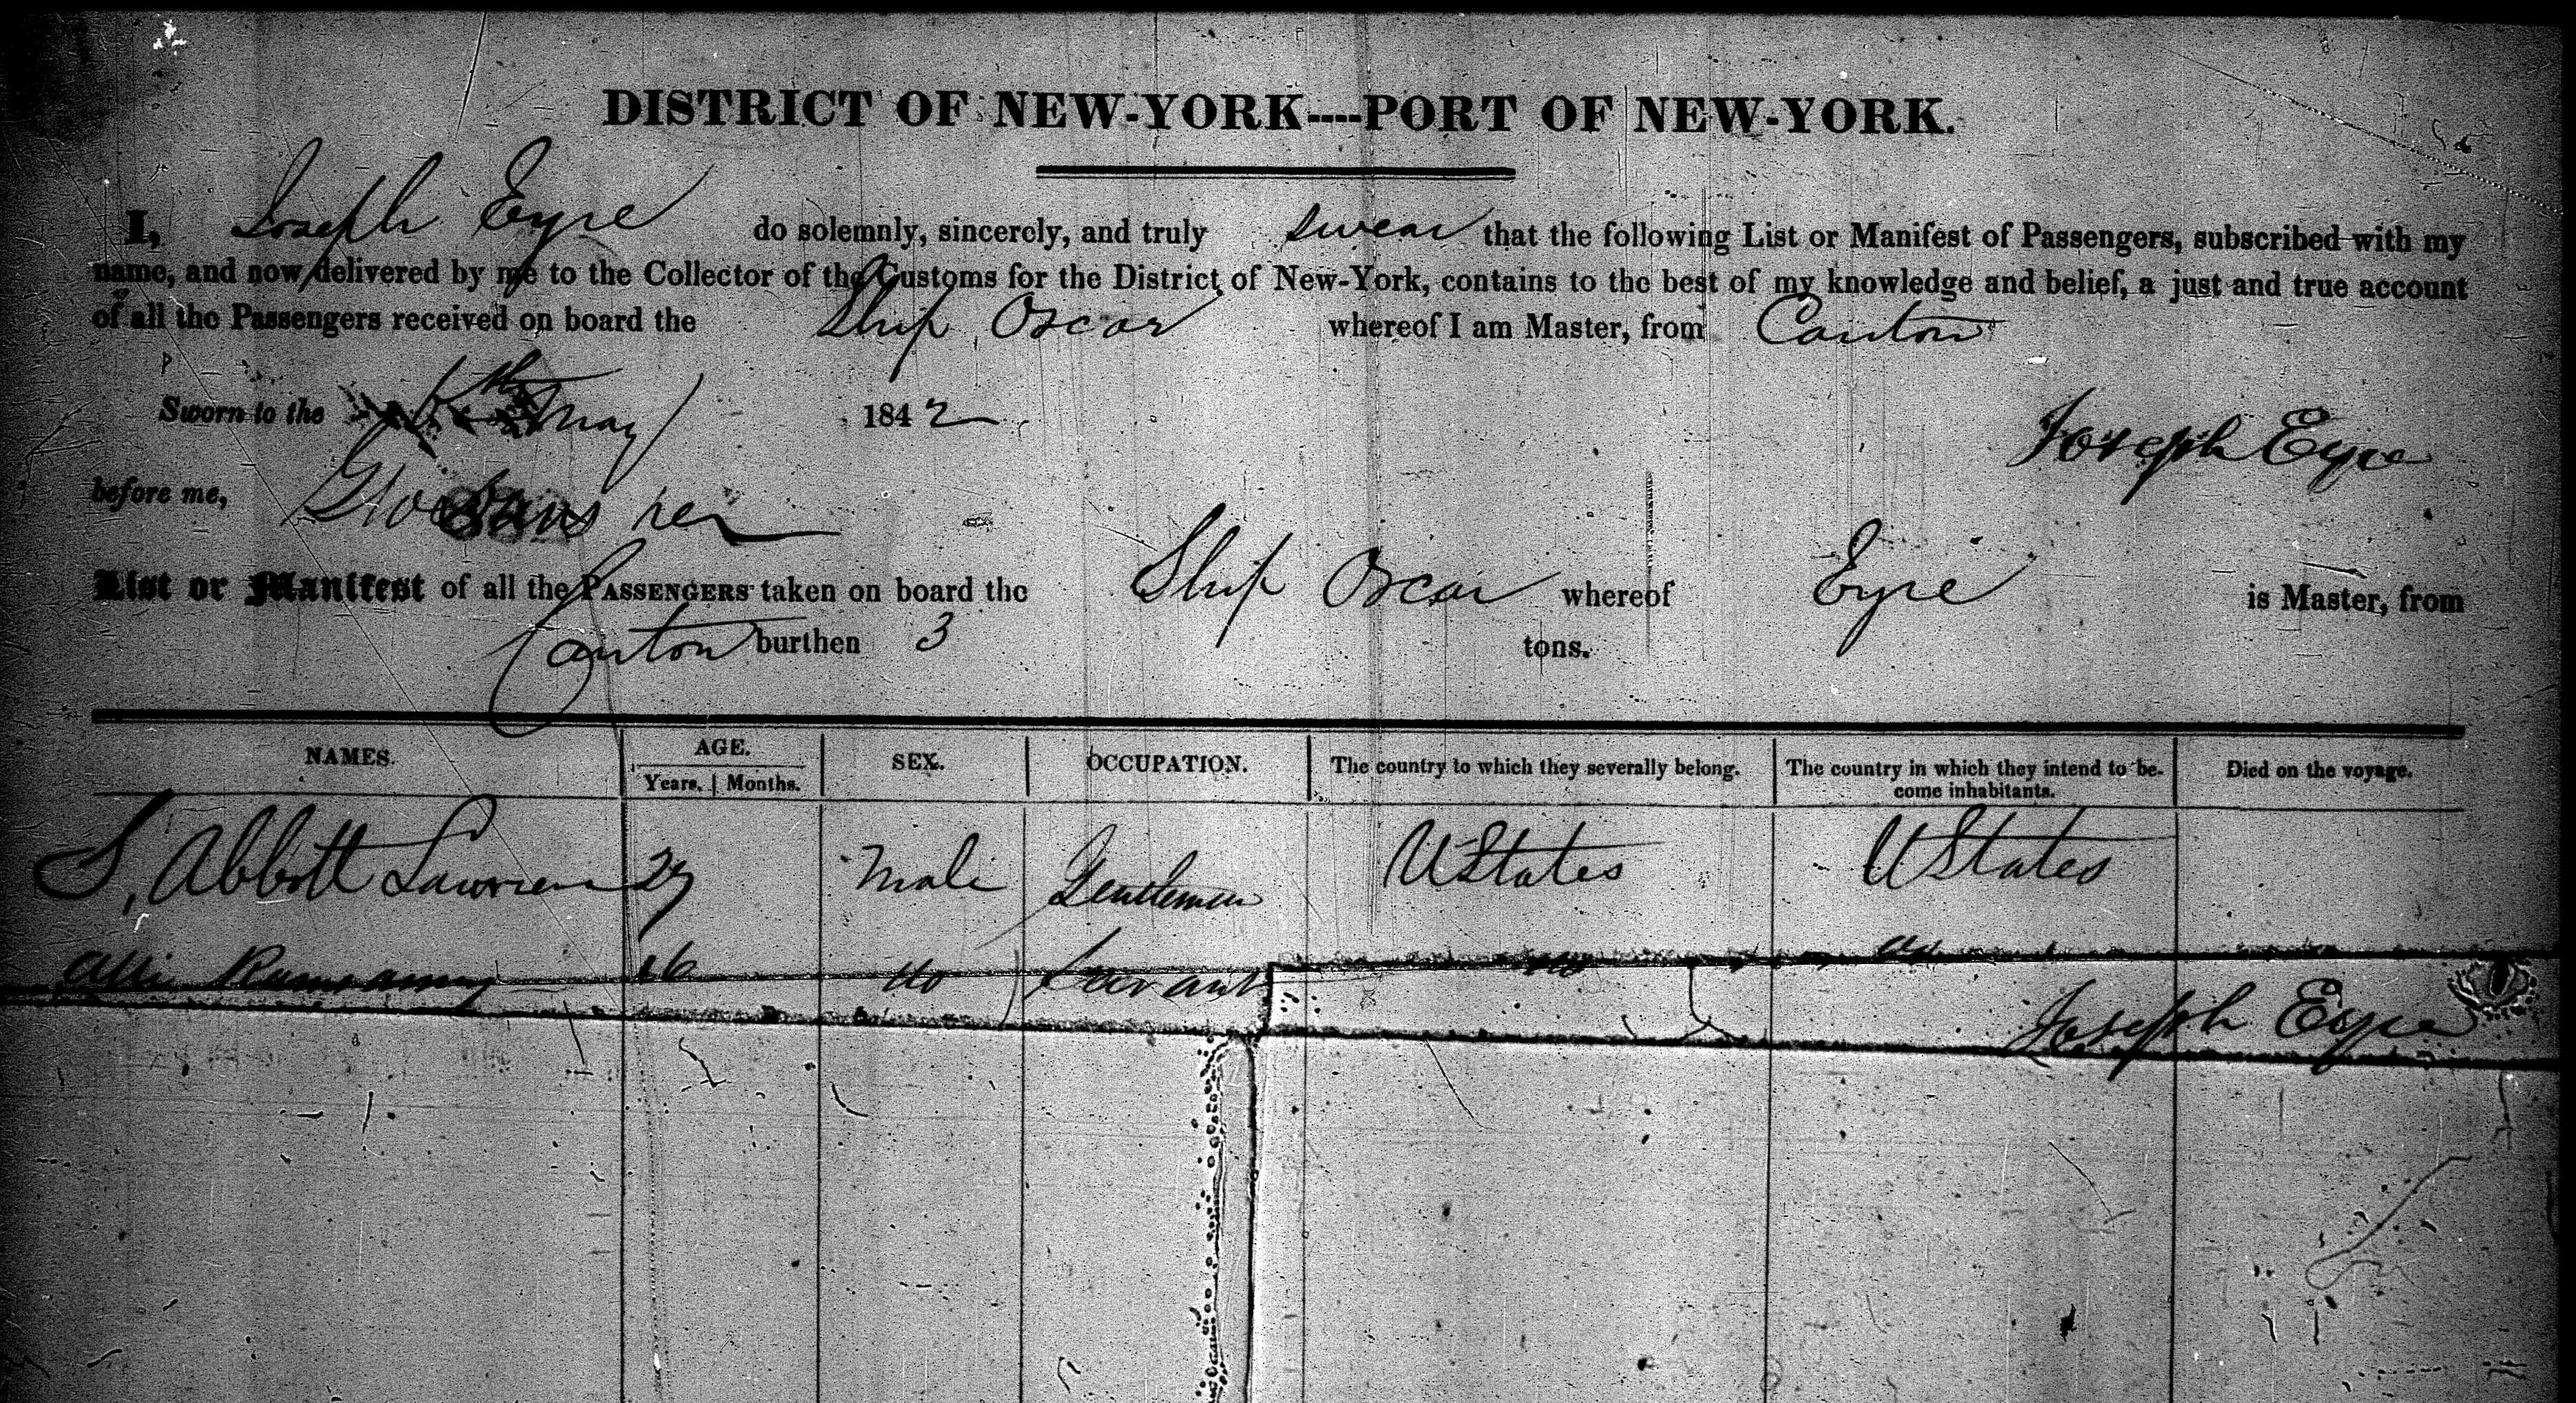 DISTRICT OF NEW-YORK----PORT OF NEW-YORK.
I, Joseph Eyre do solemnly, sincerely, and truly swear that the following List or Manifest of Passengers, subscribed with my
name, and now delivered by me to the Collector of the Customs for the District of New-York, contains to the best of my knowledge and belief, a just and true account
of all the Passengers received on board the Ship Oscar whereof I am Master, from Canton
Sworn to the May 1842
Joseph Eyre
before me,
List or Manifest of all the PASSENGERS taken on board the Ship Oscar whereof Eyre is Master, from
Canton burthen 3 tons.
NAMES. AGE. SEX. OCCUPATION. The country to which they severally belong. The country in which they intend to be- Died on the voyage.
Years. Months. come inhabitants.
S, Abbott Lawrence Male Gentleman UStates UStates
16 do Servant do do
Joseph Eyre